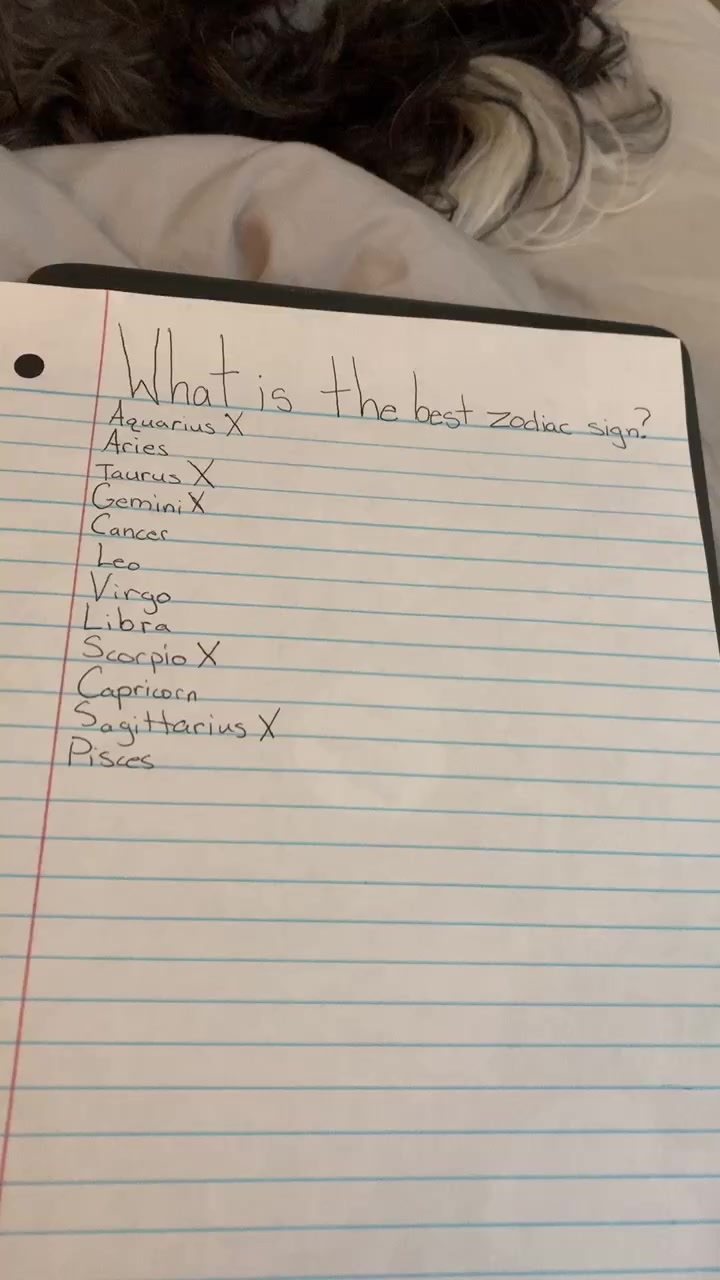 What is the best zodiac sign?
Aquarius X
Aries
Taurus X
Gemini X
Cancer
Leo
Virgo
Libra
Scorpio X
Capricorn
Sagittarius X
Pisces